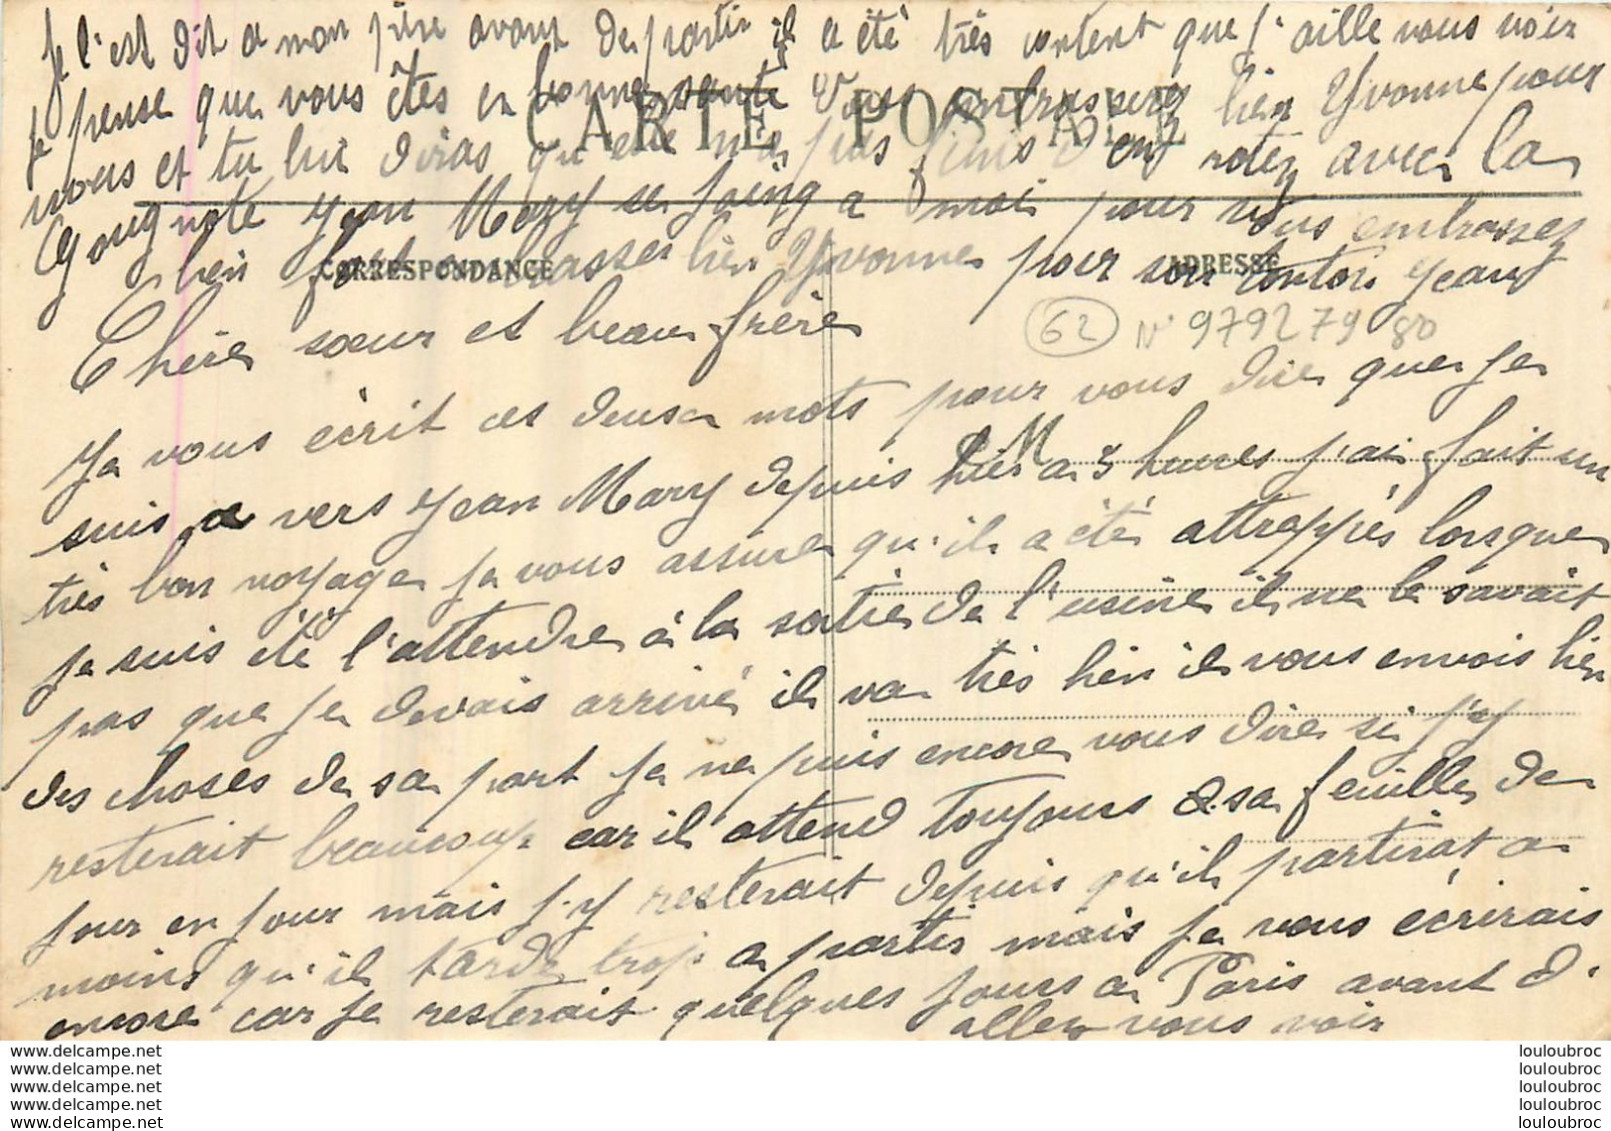 Je l'est dit a mon père avant de partir il a été très content que j'aille vous voir
je pense que vous êtes en bonne santé Vous embrasserez bien Yvonne pour
nous et tu lui diras qu'elle n'a pas finis d'en avec la
Jean Mary se joing a moi pour vous embrasser
bien fort embrasser bien Yvonne pour son tonton Jean
CARTE POSTALE
CORRESPONDANCE
ADRESSE
62 N° 979279 80
Chère sœur et beau frère
Je vous écrit ces deux mots pour vous dire que je
suis a vers Jean Mary depuis hier a 3 heures j'ai fait un
très bon voyage je vous assure qu'il a été attrappés lorsque
je suis été l'attendre à la sortie de l'usine il ne le savait
pas que je devais arrivé il va très bien il vous envois bien
des choses de sa part je ne puis encore vous dire si j'y
resterait beaucoup car il attend toujours sa feuille de
jour en jour mais j'y resterait depuis qu'il partirat a
moins qu'il tarde trop a partir mais je vous écrirais
encore car je resterait quelques jours a Paris avant d'
aller vous voir
www.delcampe.net
www.delcampe.net
www.delcampe.net
www.delcampe.net
www.delcampe.net
louloubroc
louloubroc
louloubroc
louloubroc
louloubroc